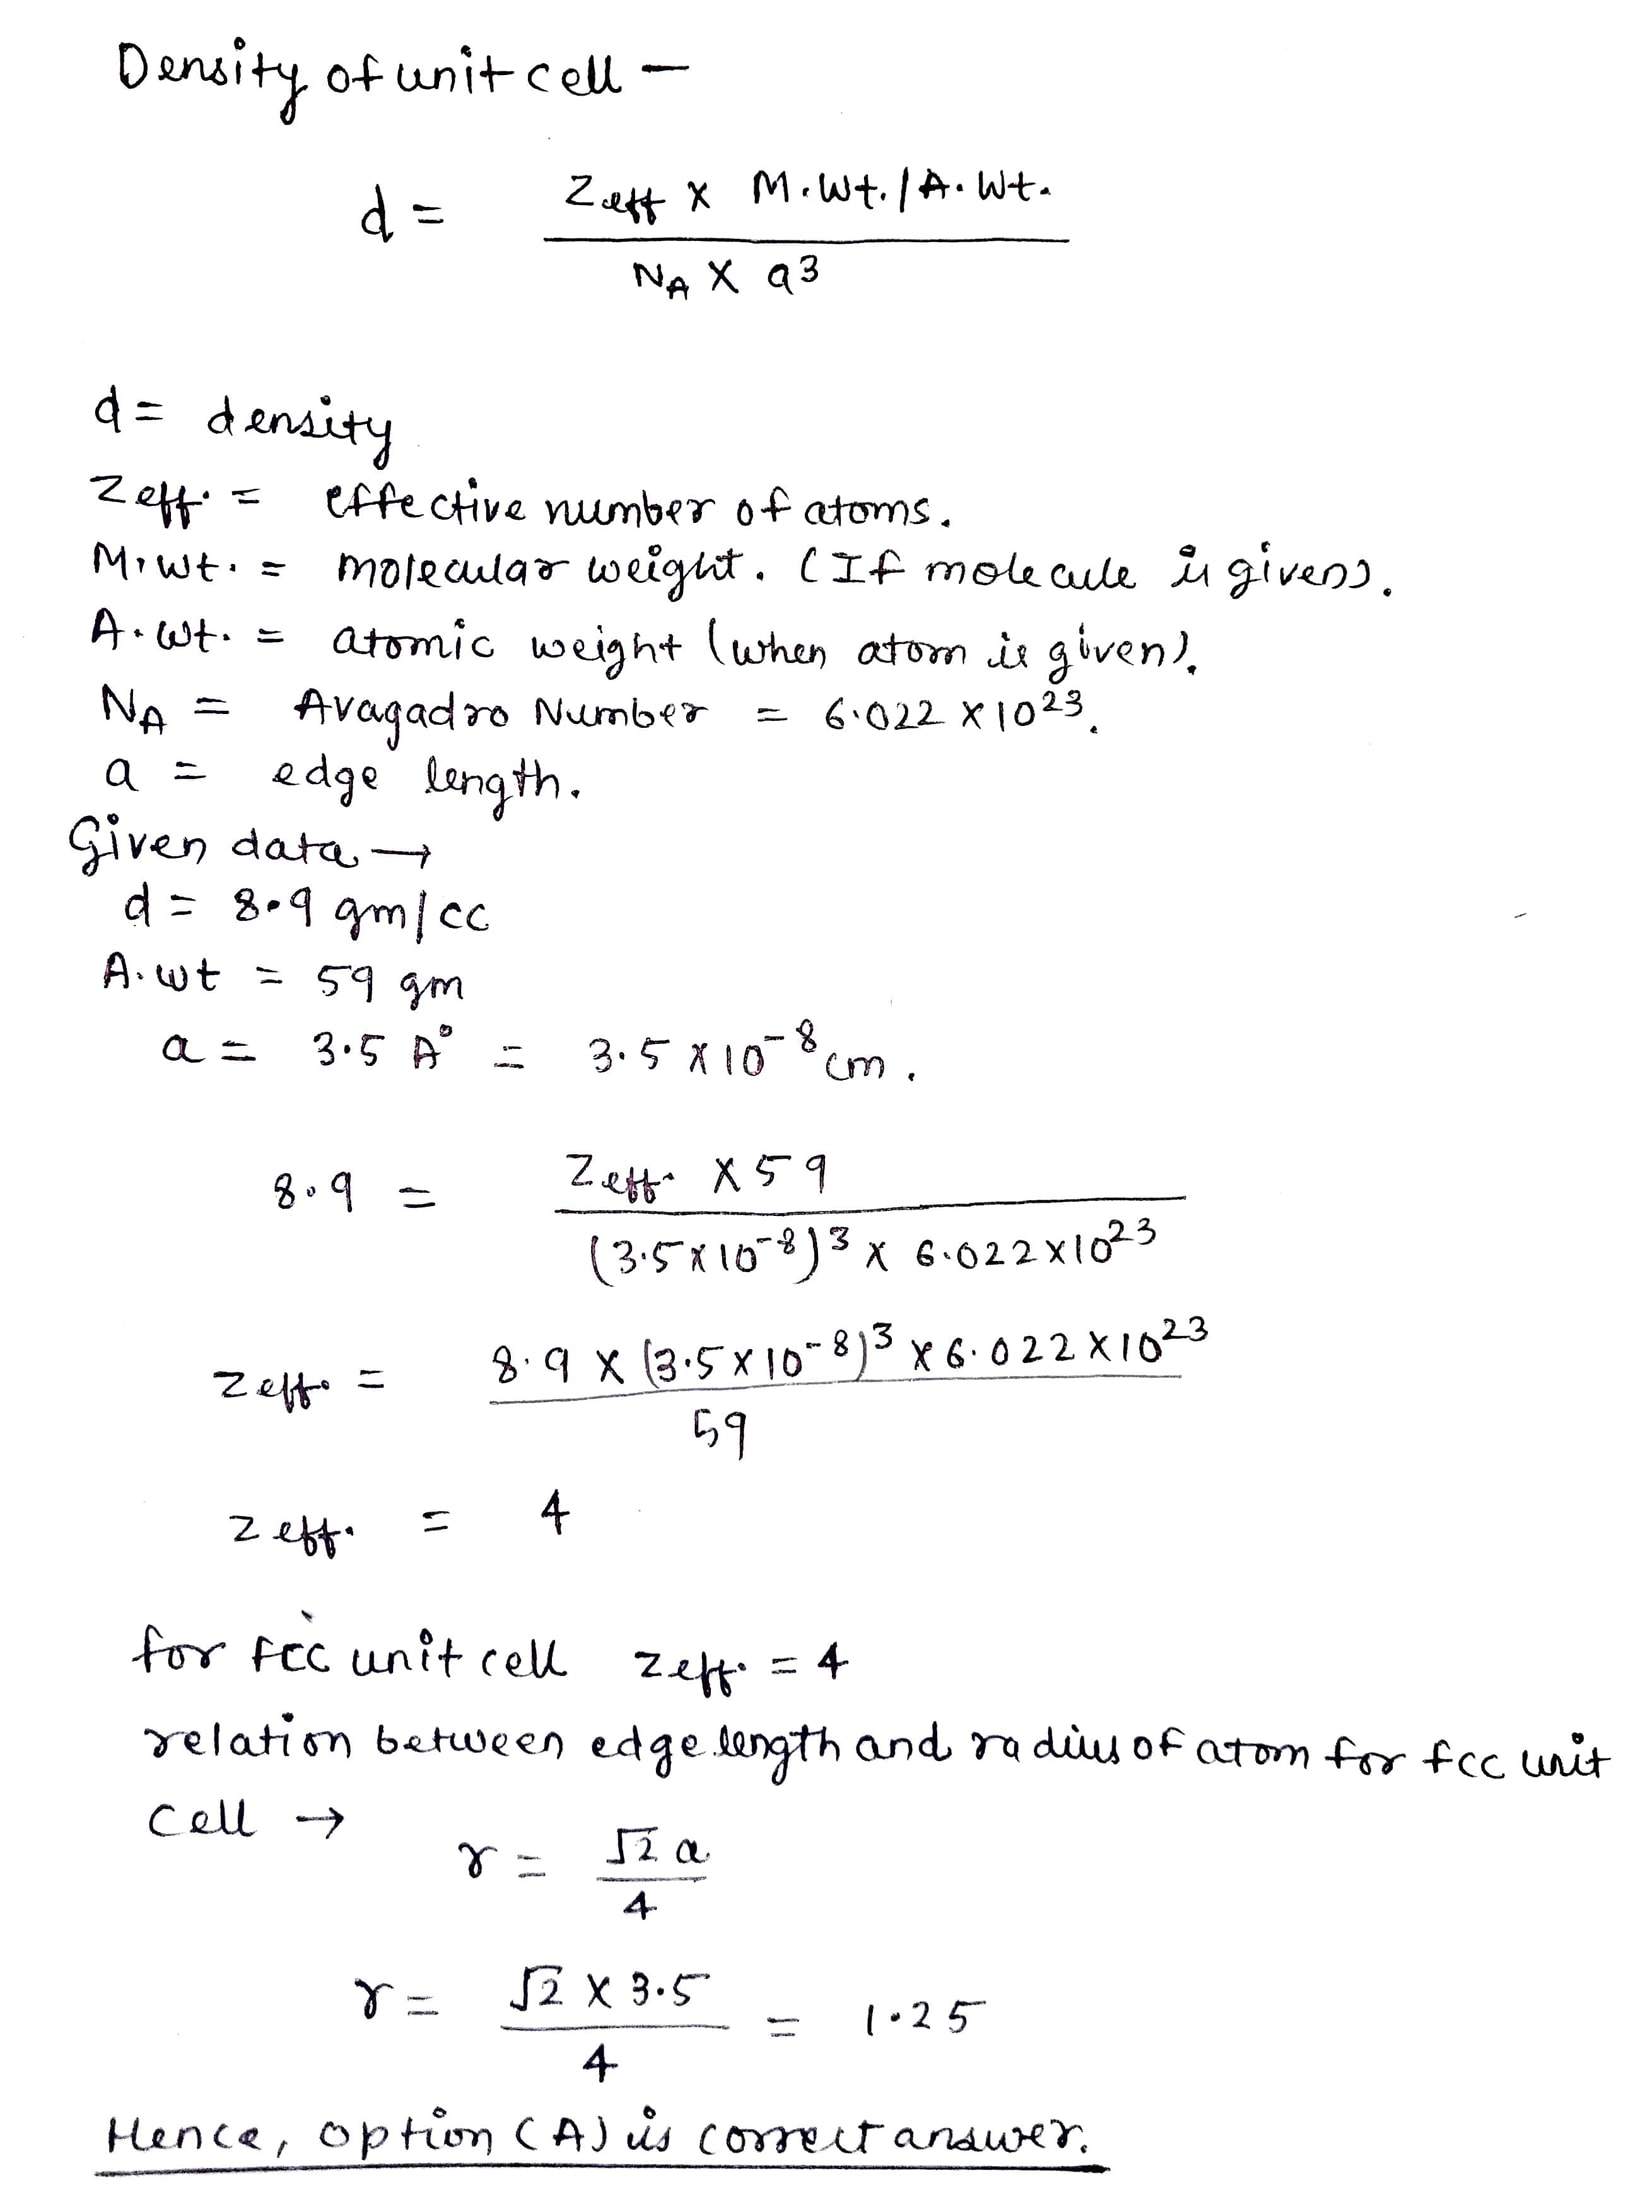 Density of unit cell —
d = Zeff x M.Wt./A.Wt.
NA X a3
d = density
Zeff. = effective number of atoms.
M.wt. = molecular weight. (If molecule is given).
A.wt. = atomic weight (when atom is given).
NA = Avagadro Number = 6.022 X 10^23.
a = edge length.
Given data →
d = 8.9 gm/cc
A.wt = 59 gm
a = 3.5 A° = 3.5 x 10^-8 cm.
8.9 = Zeff. X 59
(3.5 x 10^-8)^3 x 6.022 x 10^23
Zeff. = 8.9 X (3.5 x 10^-8)^3 x 6.022 X 10^23
59
Zeff. = 4
for fcc unit cell Zeff. = 4
relation between edge length and radius of atom for fcc unit
cell →
r = √2 a
4
r = √2 X 3.5 = 1.25
4
Hence, option (A) is correct answer.